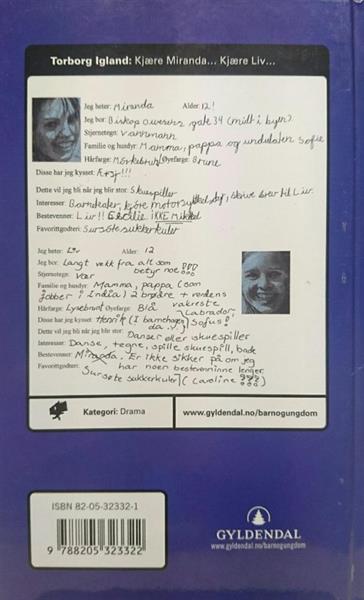 Torborg Igland: Kjære Miranda... Kjære Liv...
Jeg heter: Miranda Alder: 12!
Jeg bor: Biskop gate 34 (midt i byen)
Stjernetegn: Vannmann
Familie og husdyr: Mamma, pappa og undulaten Sofie
Hårfarge: Mørkebrun Øyefarge: Brune
Disse har jeg kysset: Æsj!!!
Dette vil jeg bli når jeg blir stor: Skuespiller
Interesser: Barneteater, kjøre motorsykkel, skrive brev til Liv.
Bestevenner: Liv!! Cecilie IKKE Mikkel
Favorittgodteri: Sursøte sukkerkuler
Jeg heter: Liv Alder: 12
Jeg bor: Langt vekk fra alt som betyr noe!!!
Stjernetegn: Vær
Familie og husdyr: Mamma, pappa (som
jobber i India) 2 brødre + verdens vakreste
Hårfarge: Lysebrun Øyefarge: Blå Labrador,
Disse har jeg kysset: Henrik (I barnehagen da..) Sofus!
Dette vil jeg bli når jeg blir stor: Danser eller skuespiller
Interesser: Danse, tegne, spille skuespill, bade
Bestevenner: Miranda. Er ikke sikker på om jeg
har noen bestevenninne lenger.
Favorittgodteri: Sursøte sukkerkuler (Caroline???)
Kategori: Drama
www.gyldendal.no/barnogungdom
ISBN 82-05-32332-1
9 788205 323322
GYLDENDAL
www.gyldendal.no/barnogungdom